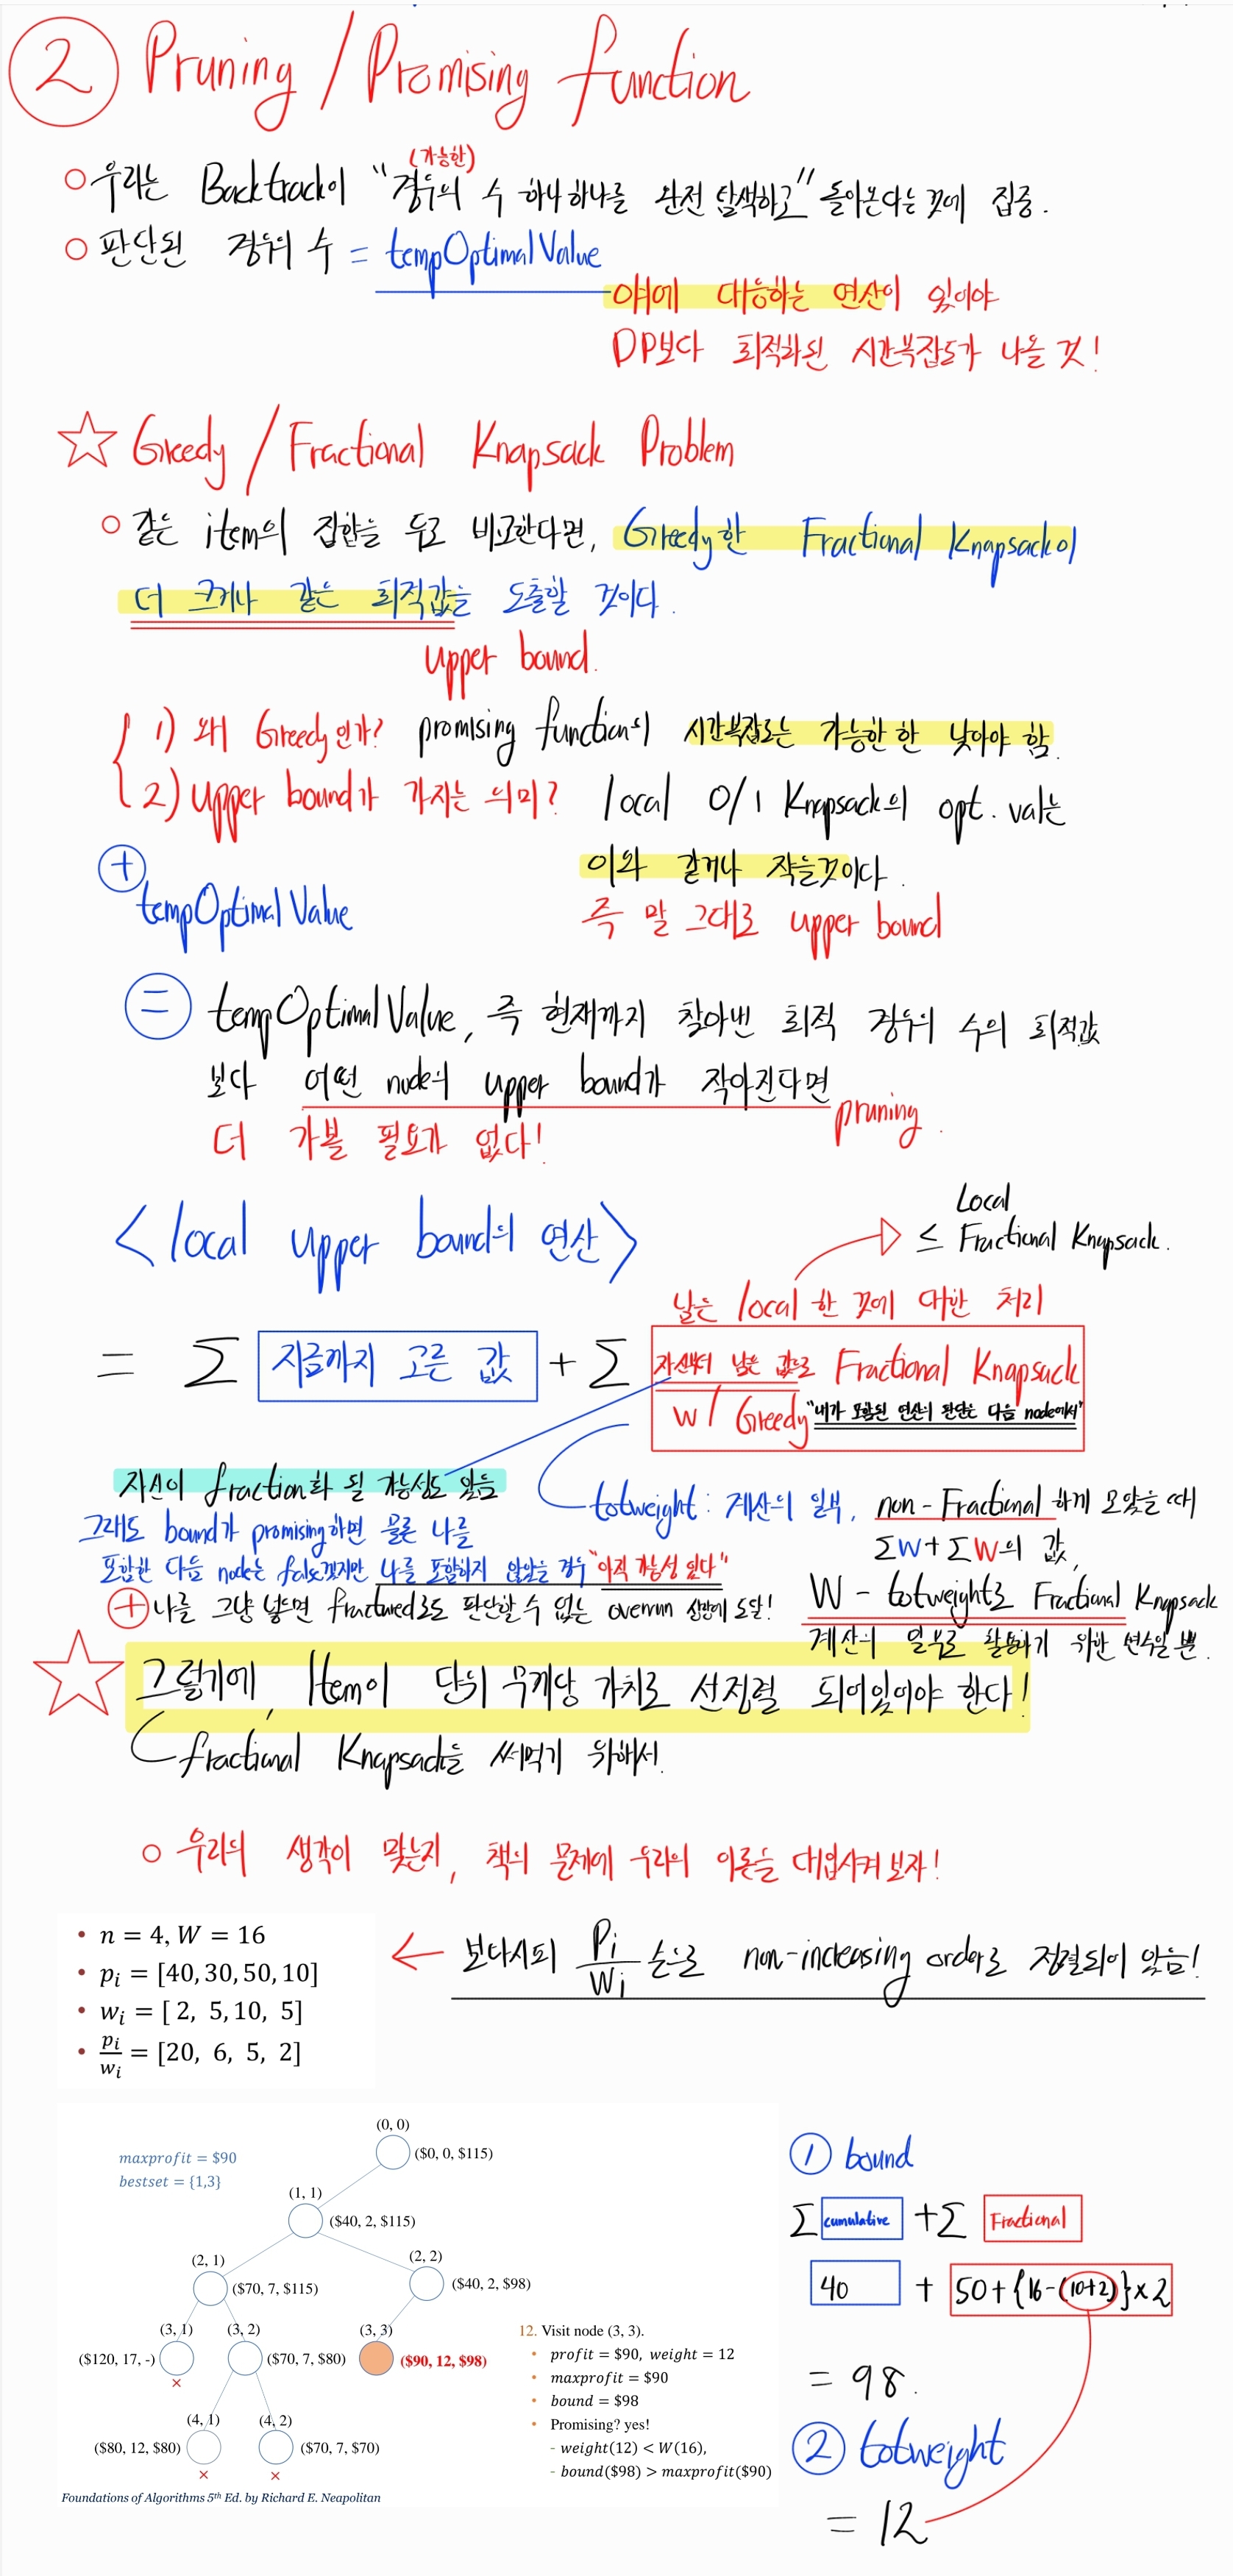 ② Pruning / Promising function
(가능한)
○ 우리는 Backtrack이 "경우의 수 하나하나를 완전 탐색하고" 돌아온다는 것에 집중.
○ 판단된 경우의 수 = tempOptimalValue
이에 대응하는 연산이 있어야
DP보다 최적화된 시간복잡도가 나올 것!
☆ Greedy / Fractional Knapsack Problem
○ 같은 item의 집합을 두고 비교한다면, Greedy한 Fractional Knapsack이
더 크거나 같은 최적값을 도출할 것이다.
upper bound.
1) 왜 Greedy인가? promising function의 시간복잡도는 가능한 한 낮아야 함.
2) upper bound가 가지는 의미? local 0/1 Knapsack의 opt. val는
이와 같거나 작을것이다.
+ tempOptimalValue
즉 말 그대로 upper bound
= tempOptimalValue, 즉 현재까지 찾아낸 최적 경우의 수의 최적값
보다 어떤 node의 upper bound가 작아진다면
pruning.
더 가볼 필요가 없다!
<local upper bound의 연산>
Local
≤ Fractional Knapsack.
남은 local한 것에 대한 처리
= Σ 지금까지 고른 값 + Σ 자신부터 남은 값으로 Fractional Knapsack
w/ Greedy "내가 포함된 연산의 판단은 다음 node에서"
자신이 fraction화 될 가능성도 있음
그래도 bound가 promising하면 물론 나를
포함한 다음 node는 false겠지만 나를 포함하지 않았을 경우 "아직 가능성 있다"
+ 나를 그냥 넣으면 fractured로도 판단할 수 없는 overrun 상황에 도달!
totweight : 계산의 일부, non-Fractional 하게 모았을 때
ΣW+ΣW의 값,
W - totweight로 Fractional Knapsack
계산의 일부로 활용하기 위한 변수일 뿐.
☆ 그렇기에, Item이 단위 무게당 가치로 선정렬 되어있어야 한다!
fractional Knapsack을 써먹기 위해서.
○ 우리의 생각이 맞는지, 책의 문제에 우리의 이론을 대입시켜보자!
• n = 4, W = 16
• pᵢ = [40, 30, 50, 10]
• wᵢ = [ 2, 5, 10, 5]
• pᵢ/wᵢ = [20, 6, 5, 2]
← 보다시피 Pi/Wi 순으로 non-increasing order로 정렬되어 있음!
maxprofit = $90
bestset = {1,3}
(0, 0)
($0, 0, $115)
(1, 1)
($40, 2, $115)
(2, 1)
($70, 7, $115)
(2, 2)
($40, 2, $98)
(3, 1)
($120, 17, -)
×
(3, 2)
($70, 7, $80)
(3, 3)
($90, 12, $98)
(4, 1)
($80, 12, $80)
×
(4, 2)
($70, 7, $70)
×
12. Visit node (3, 3).
• profit = $90, weight = 12
• maxprofit = $90
• bound = $98
• Promising? yes!
- weight(12) < W(16),
- bound($98) > maxprofit($90)
Foundations of Algorithms 5th Ed. by Richard E. Neapolitan
① bound
Σ cumulative + Σ Fractional
40 + 50+{16-(10+2)}×2
= 98.
② totweight
= 12